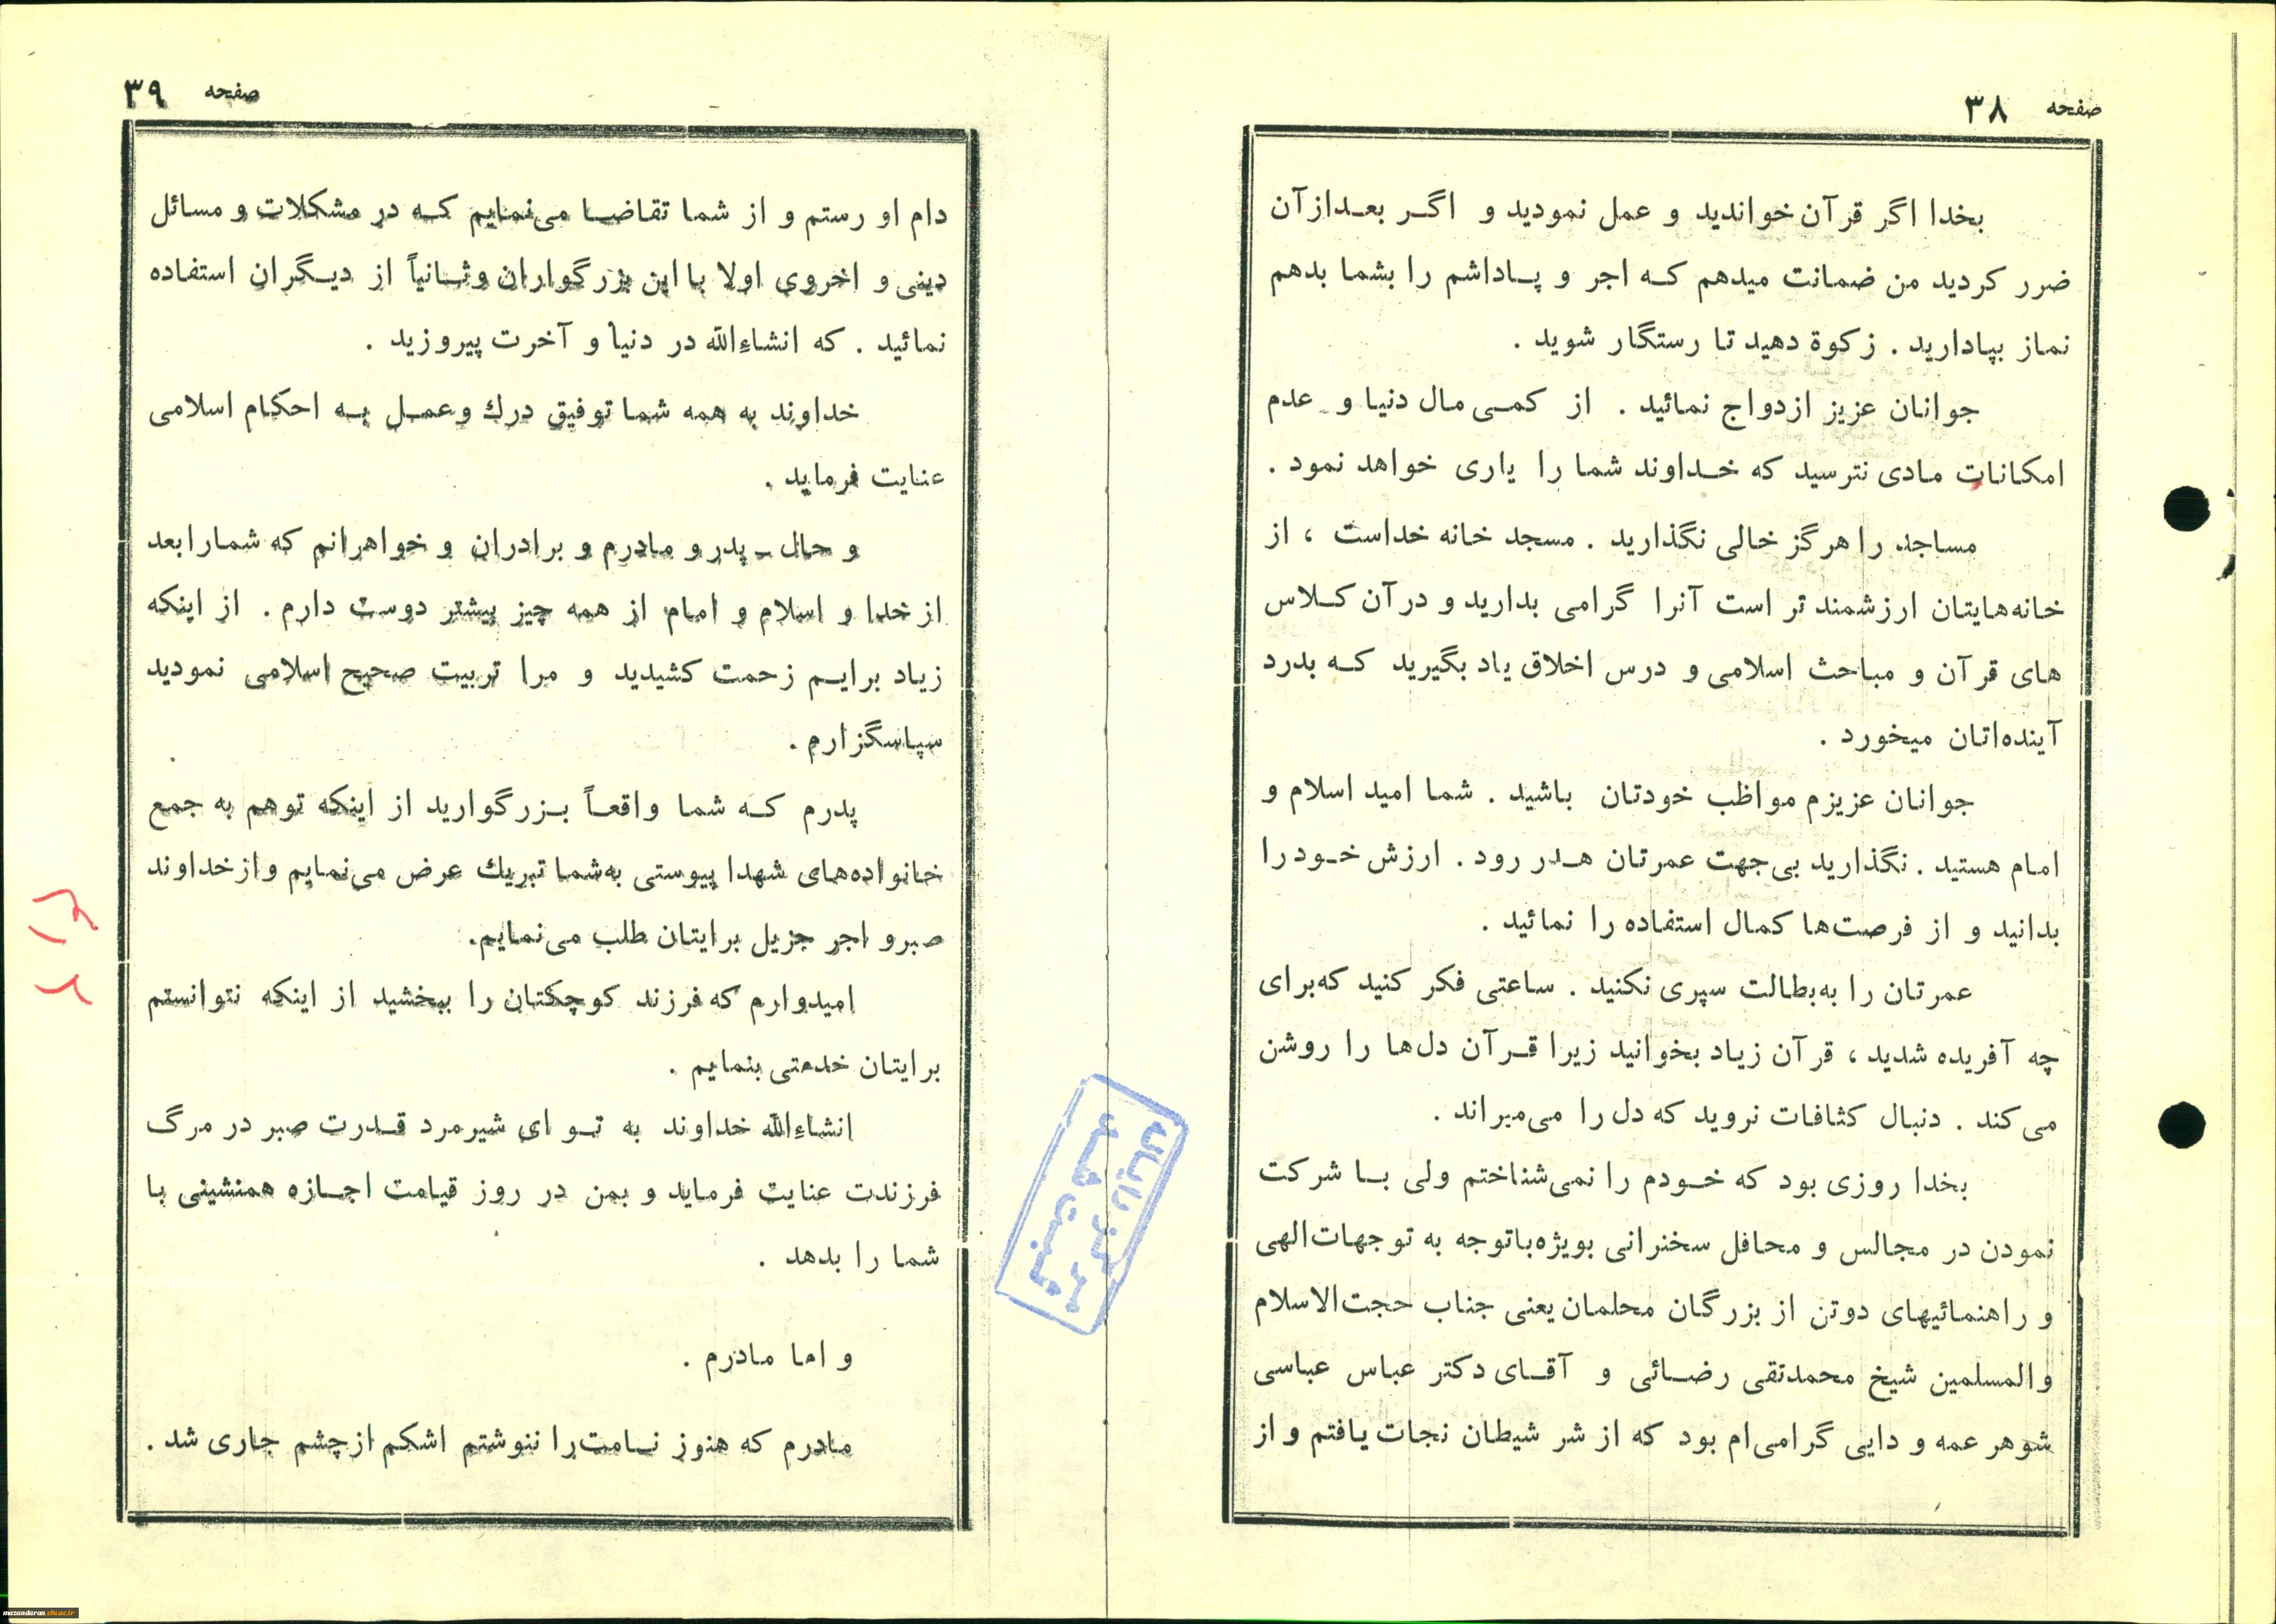 صفحه ۳۸
بخدا اگر قرآن خواندید و عمل نمودید و اگر بعدازآن
ضرر کردید من ضمانت میدهم که اجر و پاداشم را بشما بدهم
نماز بپادارید . زکوة دهید تا رستگار شوید .
جوانان عزیز ازدواج نمائید . از کمی مال دنیا و عدم
امکانات مادی نترسید که خداوند شما را یاری خواهد نمود .
مساجد را هرگز خالی نگذارید . مسجد خانه خداست ، از
خانه‌هایتان ارزشمند تر است آنرا گرامی بدارید و درآن کلاس
های قرآن و مباحث اسلامی و درس اخلاق یاد بگیرید که بدرد
آینده‌اتان میخورد .
جوانان عزیزم مواظب خودتان باشید . شما امید اسلام و
امام هستید . نگذارید بی‌جهت عمرتان هدر رود . ارزش خود را
بدانید و از فرصت‌ها کمال استفاده را نمائید .
عمرتان را به‌بطالت سپری نکنید . ساعتی فکر کنید که‌برای
چه آفریده شدید ، قرآن زیاد بخوانید زیرا قرآن دل‌ها را روشن
می‌کند . دنبال کثافات نروید که دل را می‌میراند .
بخدا روزی بود که خودم را نمی‌شناختم ولی با شرکت
نمودن در مجالس و محافل سخنرانی بویژه‌باتوجه به توجهات‌الهی
و راهنمائیهای دوتن از بزرگان محلمان یعنی جناب حجت‌الاسلام
والمسلمین شیخ محمدتقی رضائی و آقای دکتر عباس عباسی
شوهر عمه و دایی گرامی‌ام بود که از شر شیطان نجات یافتم و از
صفحه ۳۹
دام او رستم و از شما تقاضا می‌نمایم که در مشکلات و مسائل
دینی و اخروی اولا با این بزرگواران وثانیاً از دیگران استفاده
نمائید . که انشاءالله در دنیا و آخرت پیروزید .
خداوند به همه شما توفیق درك وعمل به احکام اسلامی
عنایت فرماید .
و حال ـ پدر و مادرم و برادران و خواهرانم که شمارا بعد
از خدا و اسلام و امام از همه چیز بیشتر دوست دارم . از اینکه
زیاد برایم زحمت کشیدید و مرا تربیت صحیح اسلامی نمودید
سپاسگزارم .
پدرم که شما واقعاً بزرگوارید از اینکه توهم به جمع
خانواده‌های شهدا پیوستی به‌شما تبریك عرض می‌نمایم و از خداوند
صبر و اجر جزیل برایتان طلب می‌نمایم.
امیدوارم که فرزند کوچکتان را ببخشید از اینکه نتوانستم
برایتان خدمتی بنمایم .
انشاءالله خداوند به تو ای شیرمرد قدرت صبر در مرگ
فرزندت عنایت فرماید و بمن در روز قیامت اجازه همنشینی با
شما را بدهد .
و اما مادرم .
مادرم که هنوز نامت‌را ننوشتم اشکم ازچشم جاری شد .
مرکز رایانه
ثبت شد
mazandaran.cfu.ac.ir